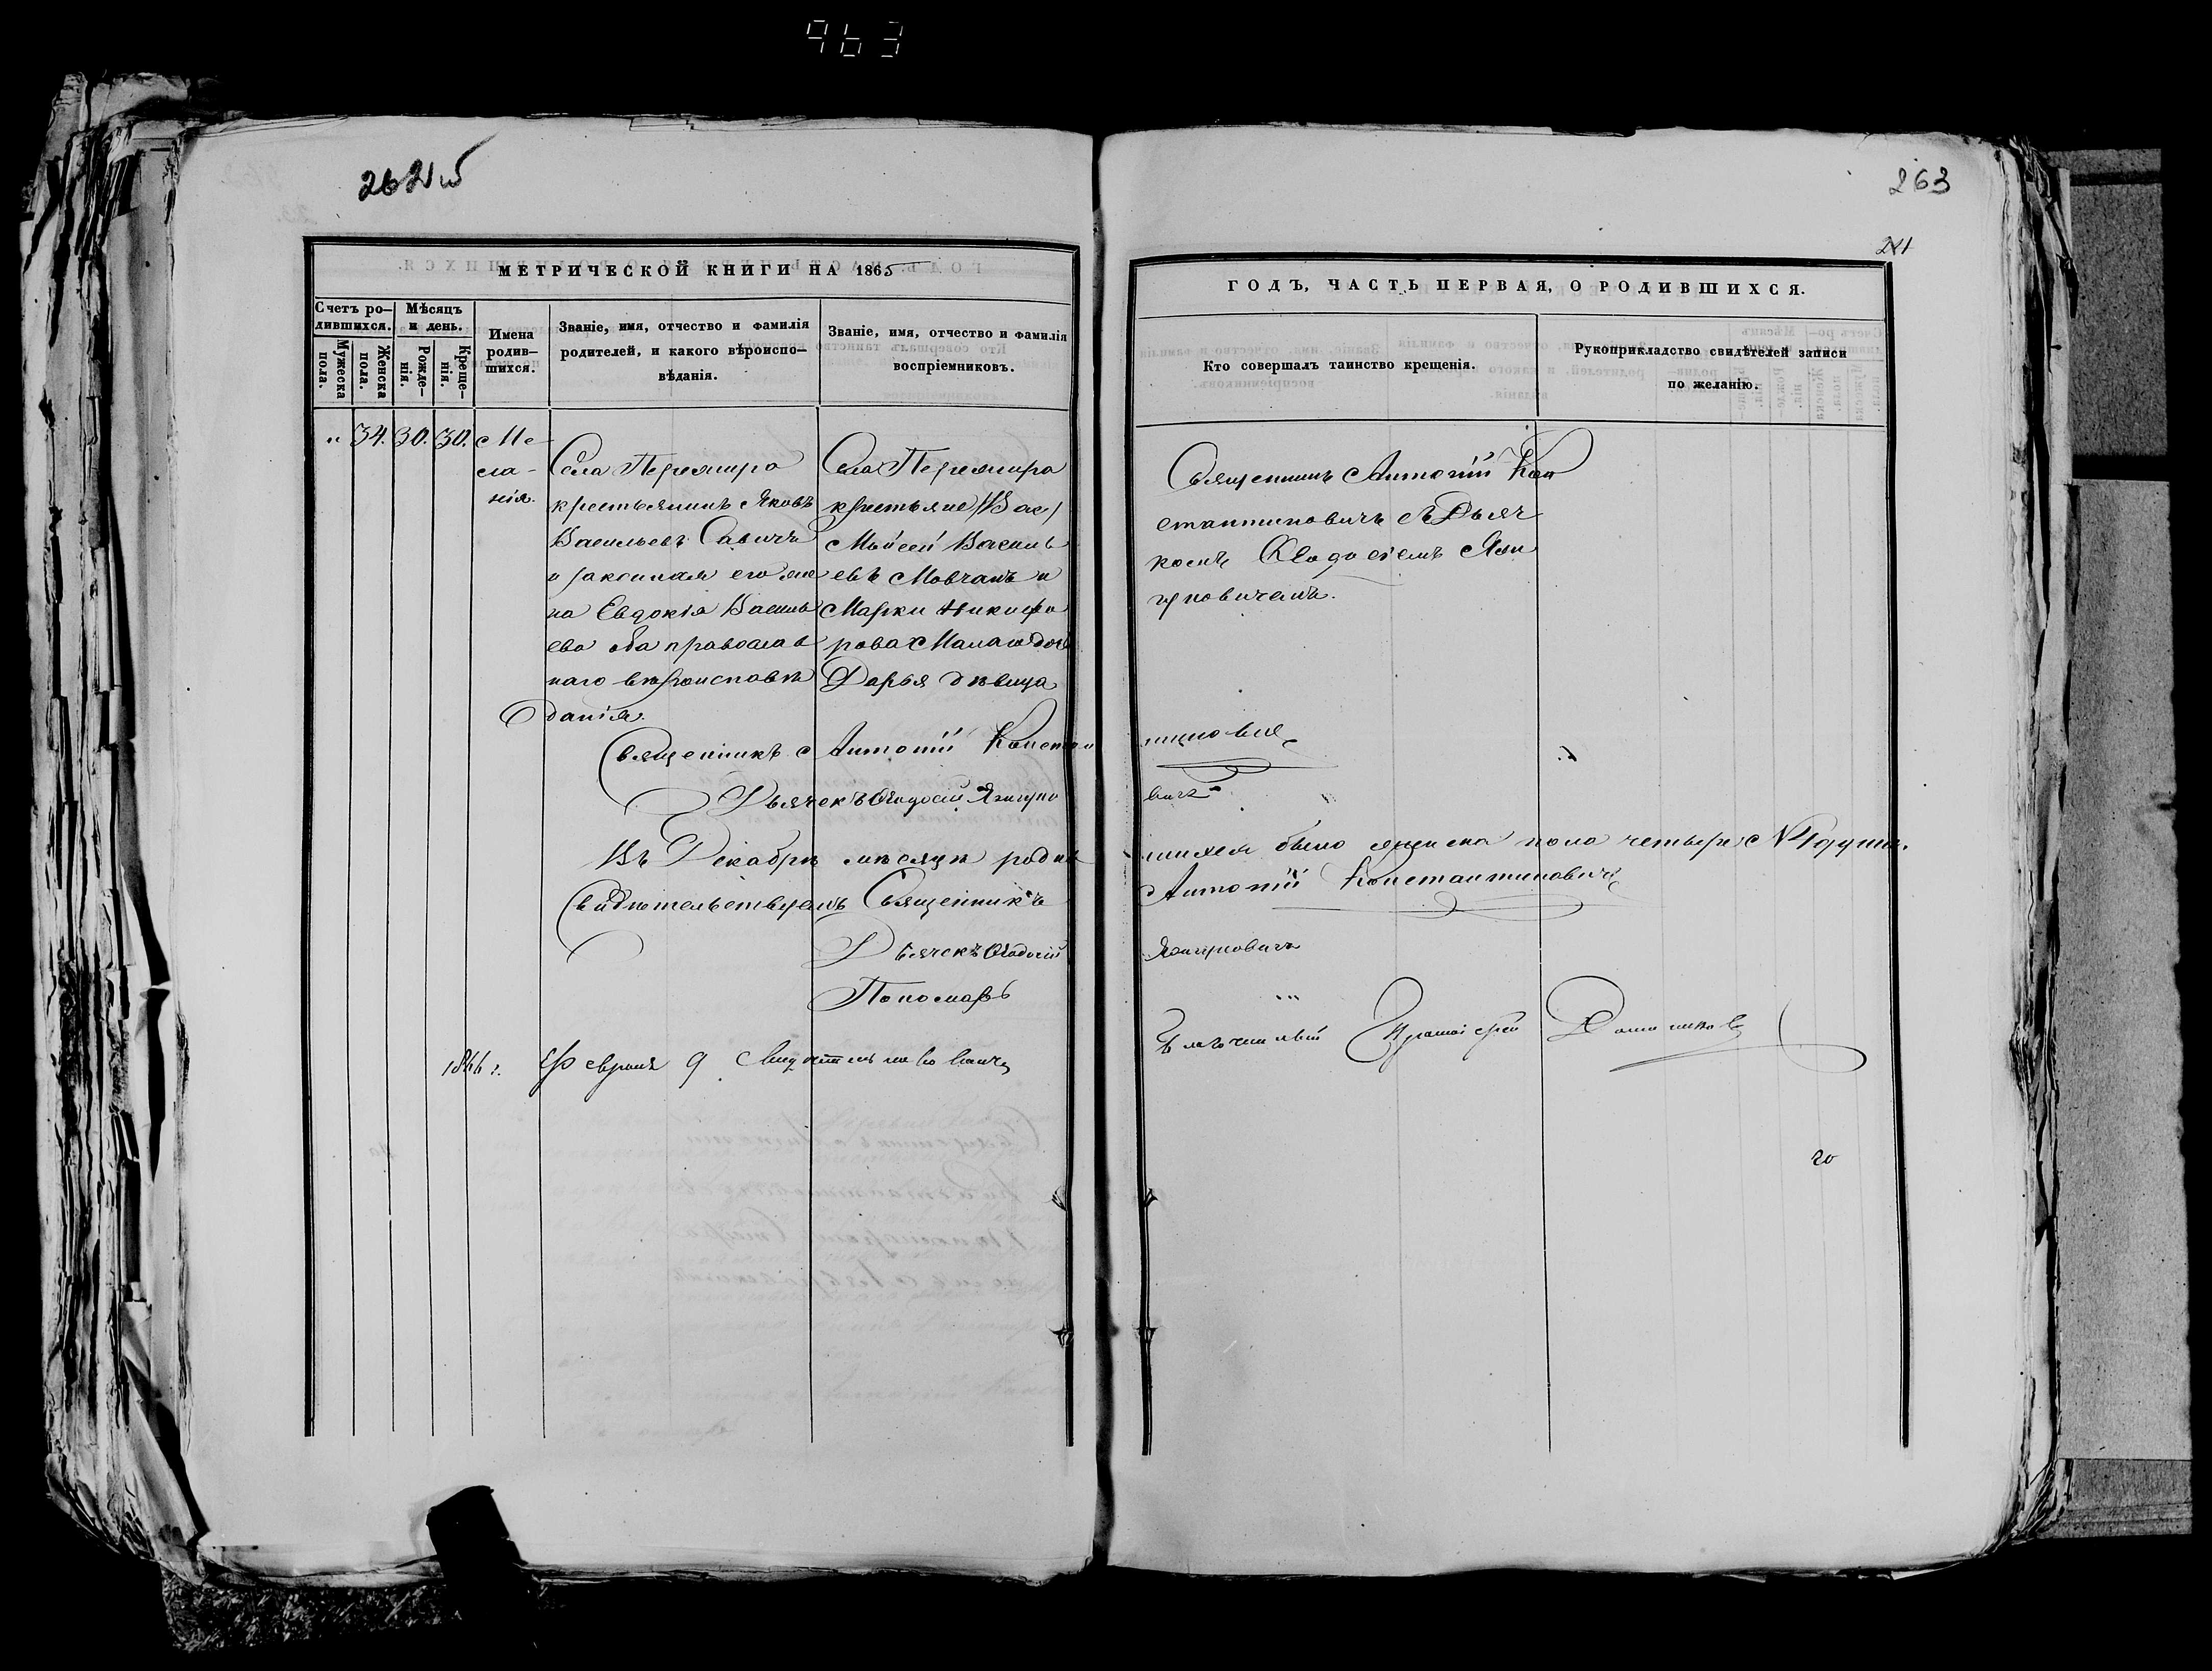 963
262 об
263
МЕТРИЧЕСКОЙ КНИГИ НА 1865
ГОДЪ, ЧАСТЬ ПЕРВАЯ, О РОДИВШИХСЯ.
Счетъ ро-
дившихся.
Мужеска
пола.
Женска
пола.
Мѣсяцъ
и день.
Рожде-
нія.
Креще-
нія.
Имена
родив-
шихся.
Званіе, имя, отчество и фамилія
родителей, и какого вѣроиспо-
вѣданія.
Званіе, имя, отчество и фамилія
воспріемниковъ.
Кто совершалъ таинство крещенія.
Рукоприкладство свидѣтелей записи
по желанію.
" 34. 30. 30.
Ме
ла-
нія.
Села Перемира
крестьянинъ Яковъ
Васильевъ Савичъ
и законная его же
на Евдокія Василь
ева оба православ
наго вѣроисповѣ
данія.
Села Перемира
крестьяне
Мойсей Василь
евъ Мовчанъ и
Марки Никифо
рова дочь
Дарья дѣвица
Священникъ Антоній Кон
стантиновичъ съ Дьяч
комъ
Священникъ Антоній Констан
тиновичъ
Дьячекъ
вичъ
Въ Декабрѣ мѣсяцѣ родив
шихся было женска пола четыре души.
Свидѣтельствуемъ Священникъ
Антоній Константиновичъ
Дьячекъ
Пономарь "
1866 г. Февраля 9
Благочинный Протоіерей